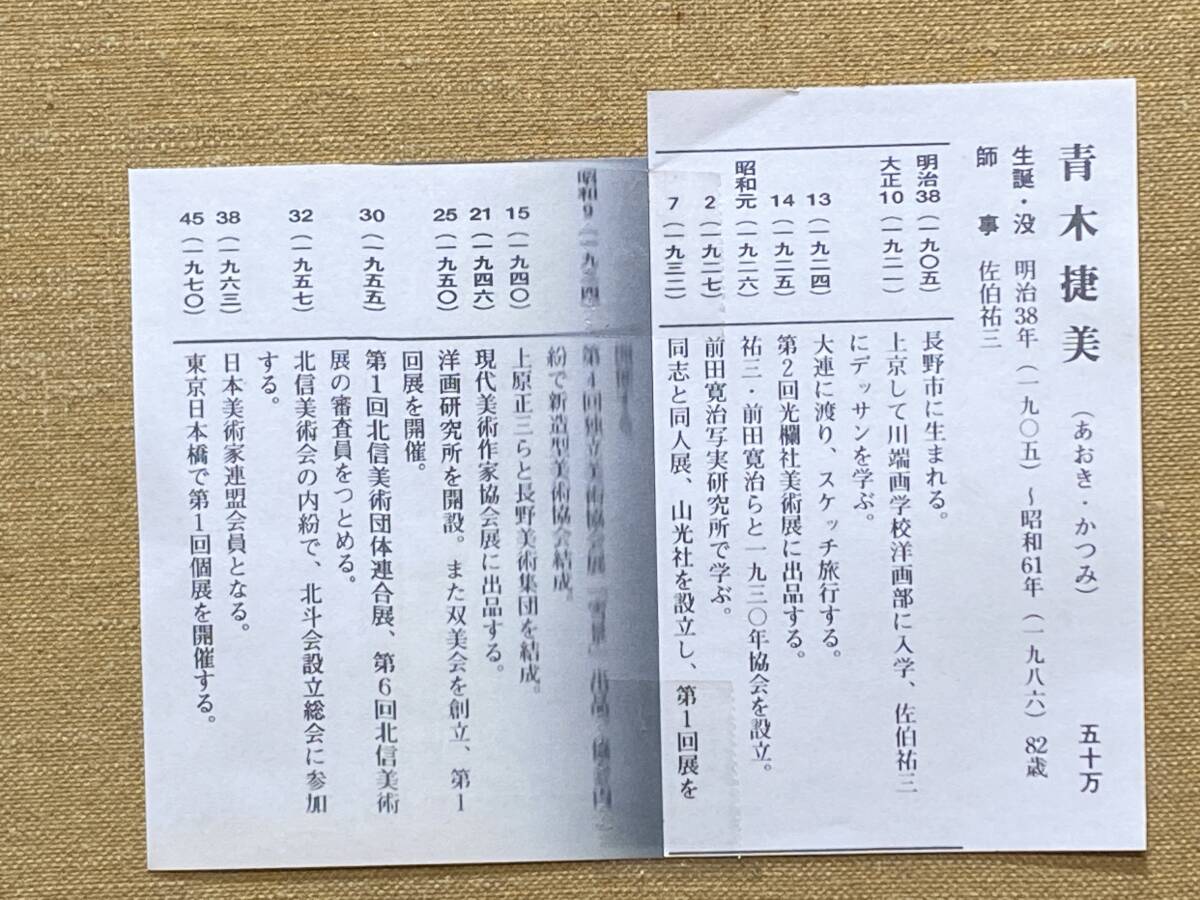 青木捷美 (あおき・かつみ) 五十万
生誕・没 明治38年(一九〇五)～昭和61年(一九八六)82歳
師事 佐伯祐三
明治38(一九〇五) 長野市に生まれる。
大正10(一九二一) 上京して川端画学校洋画部に入学、佐伯祐三
にデッサンを学ぶ。
13(一九二四) 大連に渡り、スケッチ旅行する。
14(一九二五) 第2回光欄社美術展に出品する。
昭和元(一九二六) 祐三・前田寛治らと一九三〇年協会を設立。
2(一九二七) 前田寛治写実研究所で学ぶ。
7(一九三二) 同志と同人展、山光社を設立し、第1回展を
昭和9(一九三四) 第4回独立美術協会展
紛で新造型美術協会結成。
15(一九四〇) 上原正三らと長野美術集団を結成。
21(一九四六) 現代美術作家協会展に出品する。
25(一九五〇) 洋画研究所を開設。また双美会を創立、第1
回展を開催。
30(一九五五) 第1回北信美術団体連合展、第6回北信美術
展の審査員をつとめる。
32(一九五七) 北信美術会の内紛で、北斗会設立総会に参加
する。
38(一九六三) 日本美術家連盟会員となる。
45(一九七〇) 東京日本橋で第1回個展を開催する。